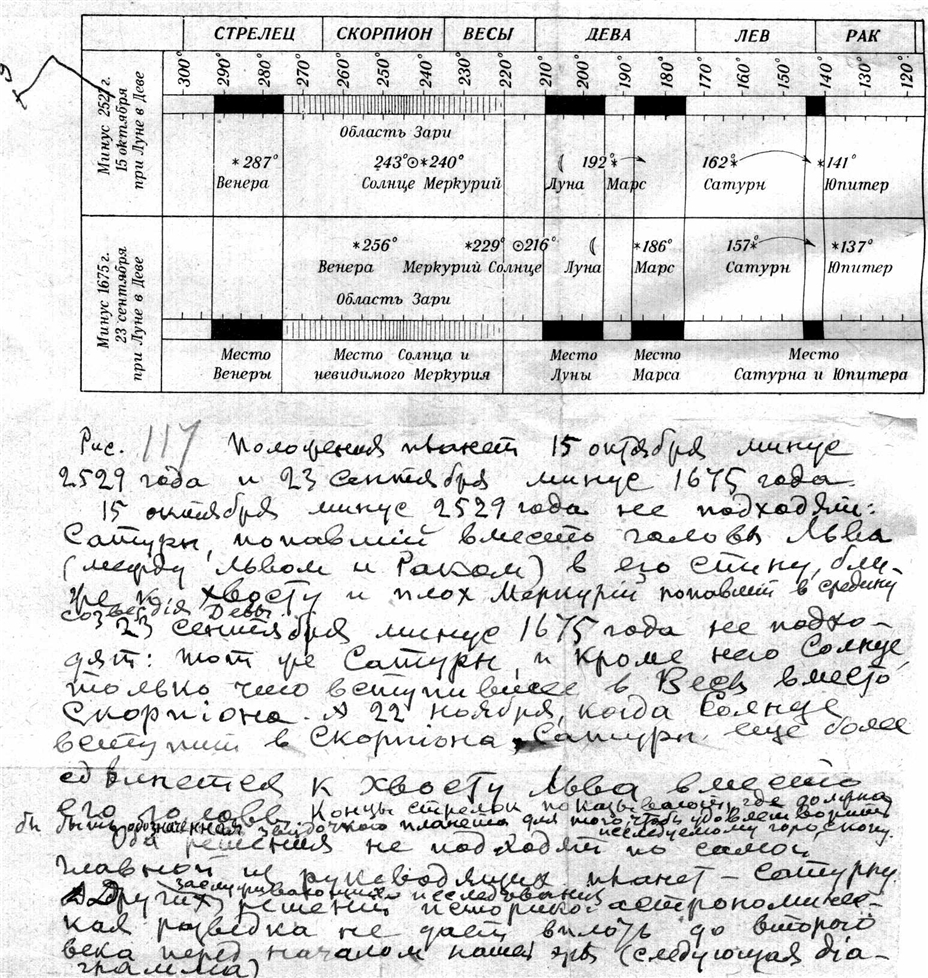 СТРЕЛЕЦ СКОРПИОН ВЕСЫ ДЕВА ЛЕВ РАК
300° 290° 280° 270° 260° 250° 240° 230° 220° 210° 200° 190° 180° 170° 160° 150° 140° 130° 120°
Минус 2529 г.
15 октября
при Луне в Деве
Область Зари
*287° 243°⊙*240° ☾ 192°* 162°* *141°
Венера Солнце Меркурий Луна Марс Сатурн Юпитер
Минус 1675 г.
23 сентября
при Луне в Деве
*256° *229° ⊙216° ☾ *186° 157* *137°
Венера Меркурий Солнце Луна Марс Сатурн Юпитер
Область Зари
Место Место Солнца и Место Место Место
Венеры невидимого Меркурия Луны Марса Сатурна и Юпитера
Рис. 117 Положения планет 15 октября минус
2529 года и 23 сентября минус 1675 года
15 октября минус 2529 года не подходят:
Сатурн, попавший вместо головы Льва
(между Львом и Раком) в его спину, бли-
же к хвосту и плох Меркурій попавший в средину
созвездія Девы
23 сентября минус 1675 года не подхо-
дят: тот же Сатурн, и кроме него Солнце,
только что вступившее в Весы вместо
Скорпіона. А 22 ноября, когда Солнце
вступит в Скорпіона, Сатурн еще более
сдвинется к хвосту Льва вместо
его головы. Концы стрелок показывают, где должна
бы быть обозначенная звездочкой планета для того, чтобы удовлетворить
исследуемому гороскопу.
Оба решения не подходят по самой
главной из руководящих планет – Сатурну
А других заслуживающих исследования
решений историко-астрономичес-
кая разведка не дает вплоть до второго
века перед началом нашей эры (следующая діа-
грамма)